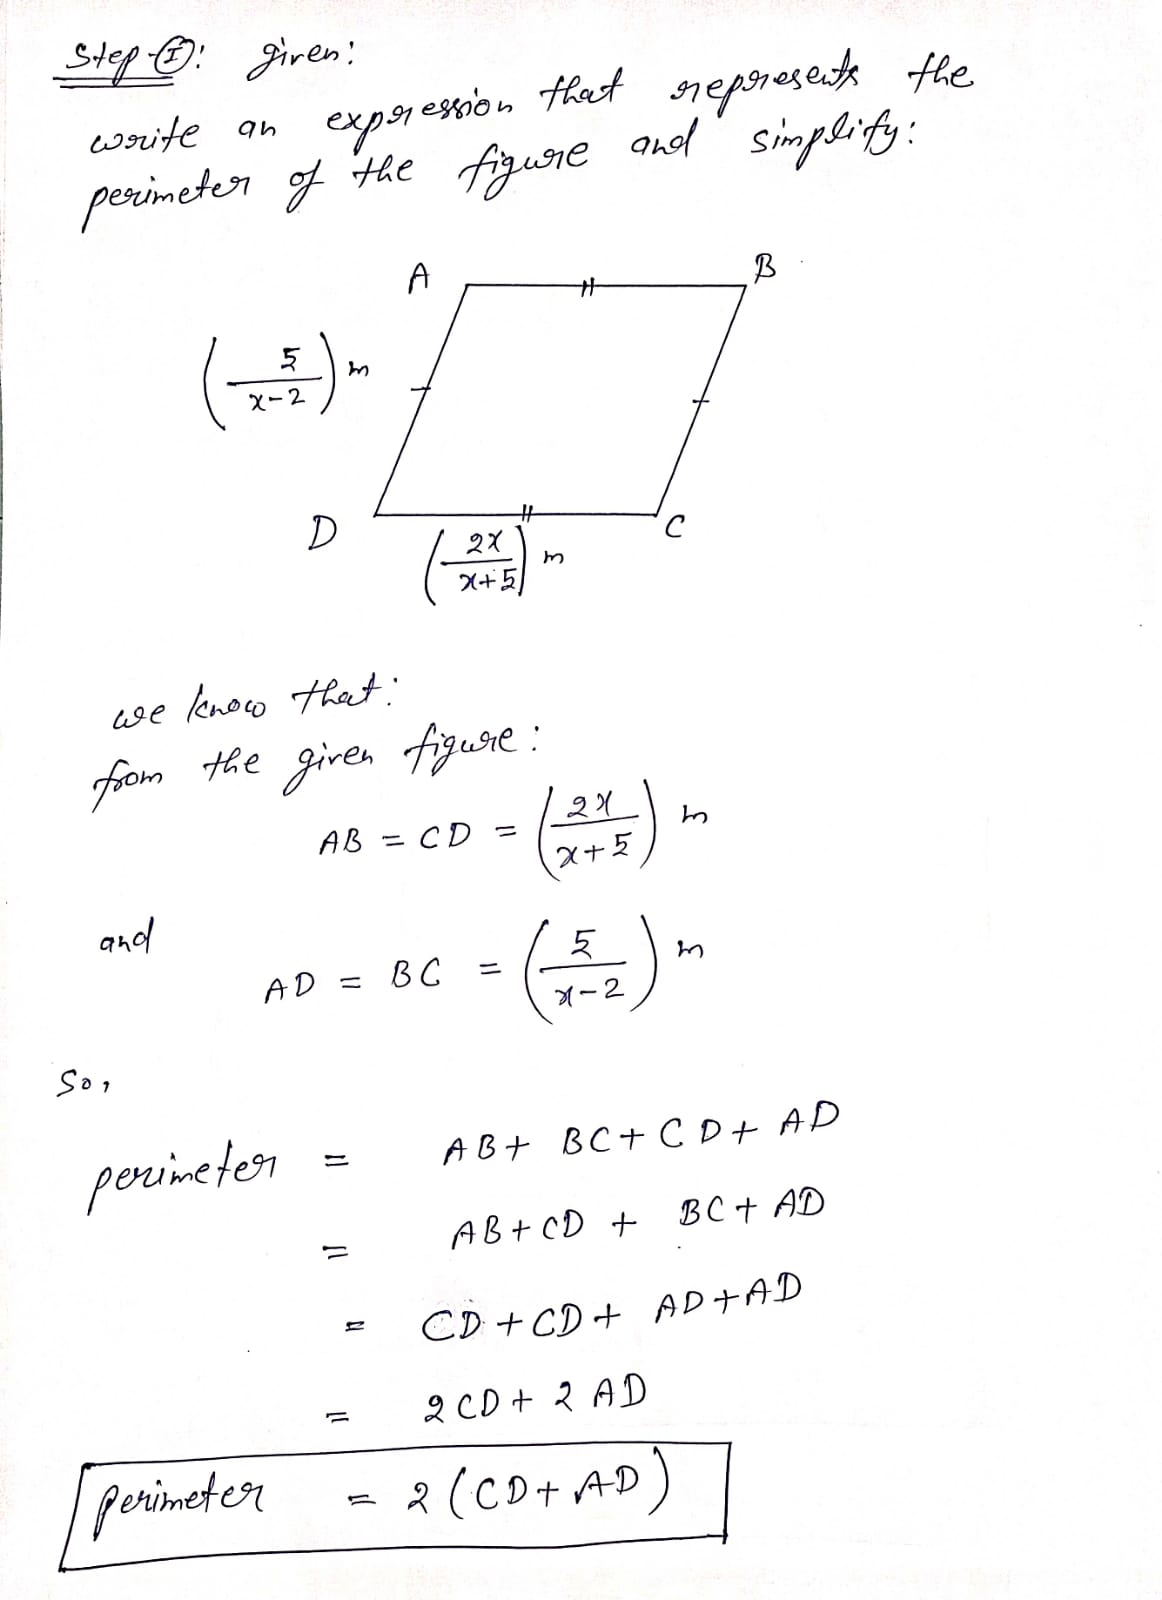 Step-I: given:
write an expression that represents the
perimeter of the figure and simplify:
A B
(5/(x-2)) m
D C
(2x/(x+5)) m
we know that:
from the given figure:
AB = CD = (2x/(x+5)) m
and
AD = BC = (5/(x-2)) m
So,
perimeter = AB + BC + CD + AD
= AB + CD + BC + AD
= CD + CD + AD + AD
= 2CD + 2AD
perimeter = 2(CD + AD)